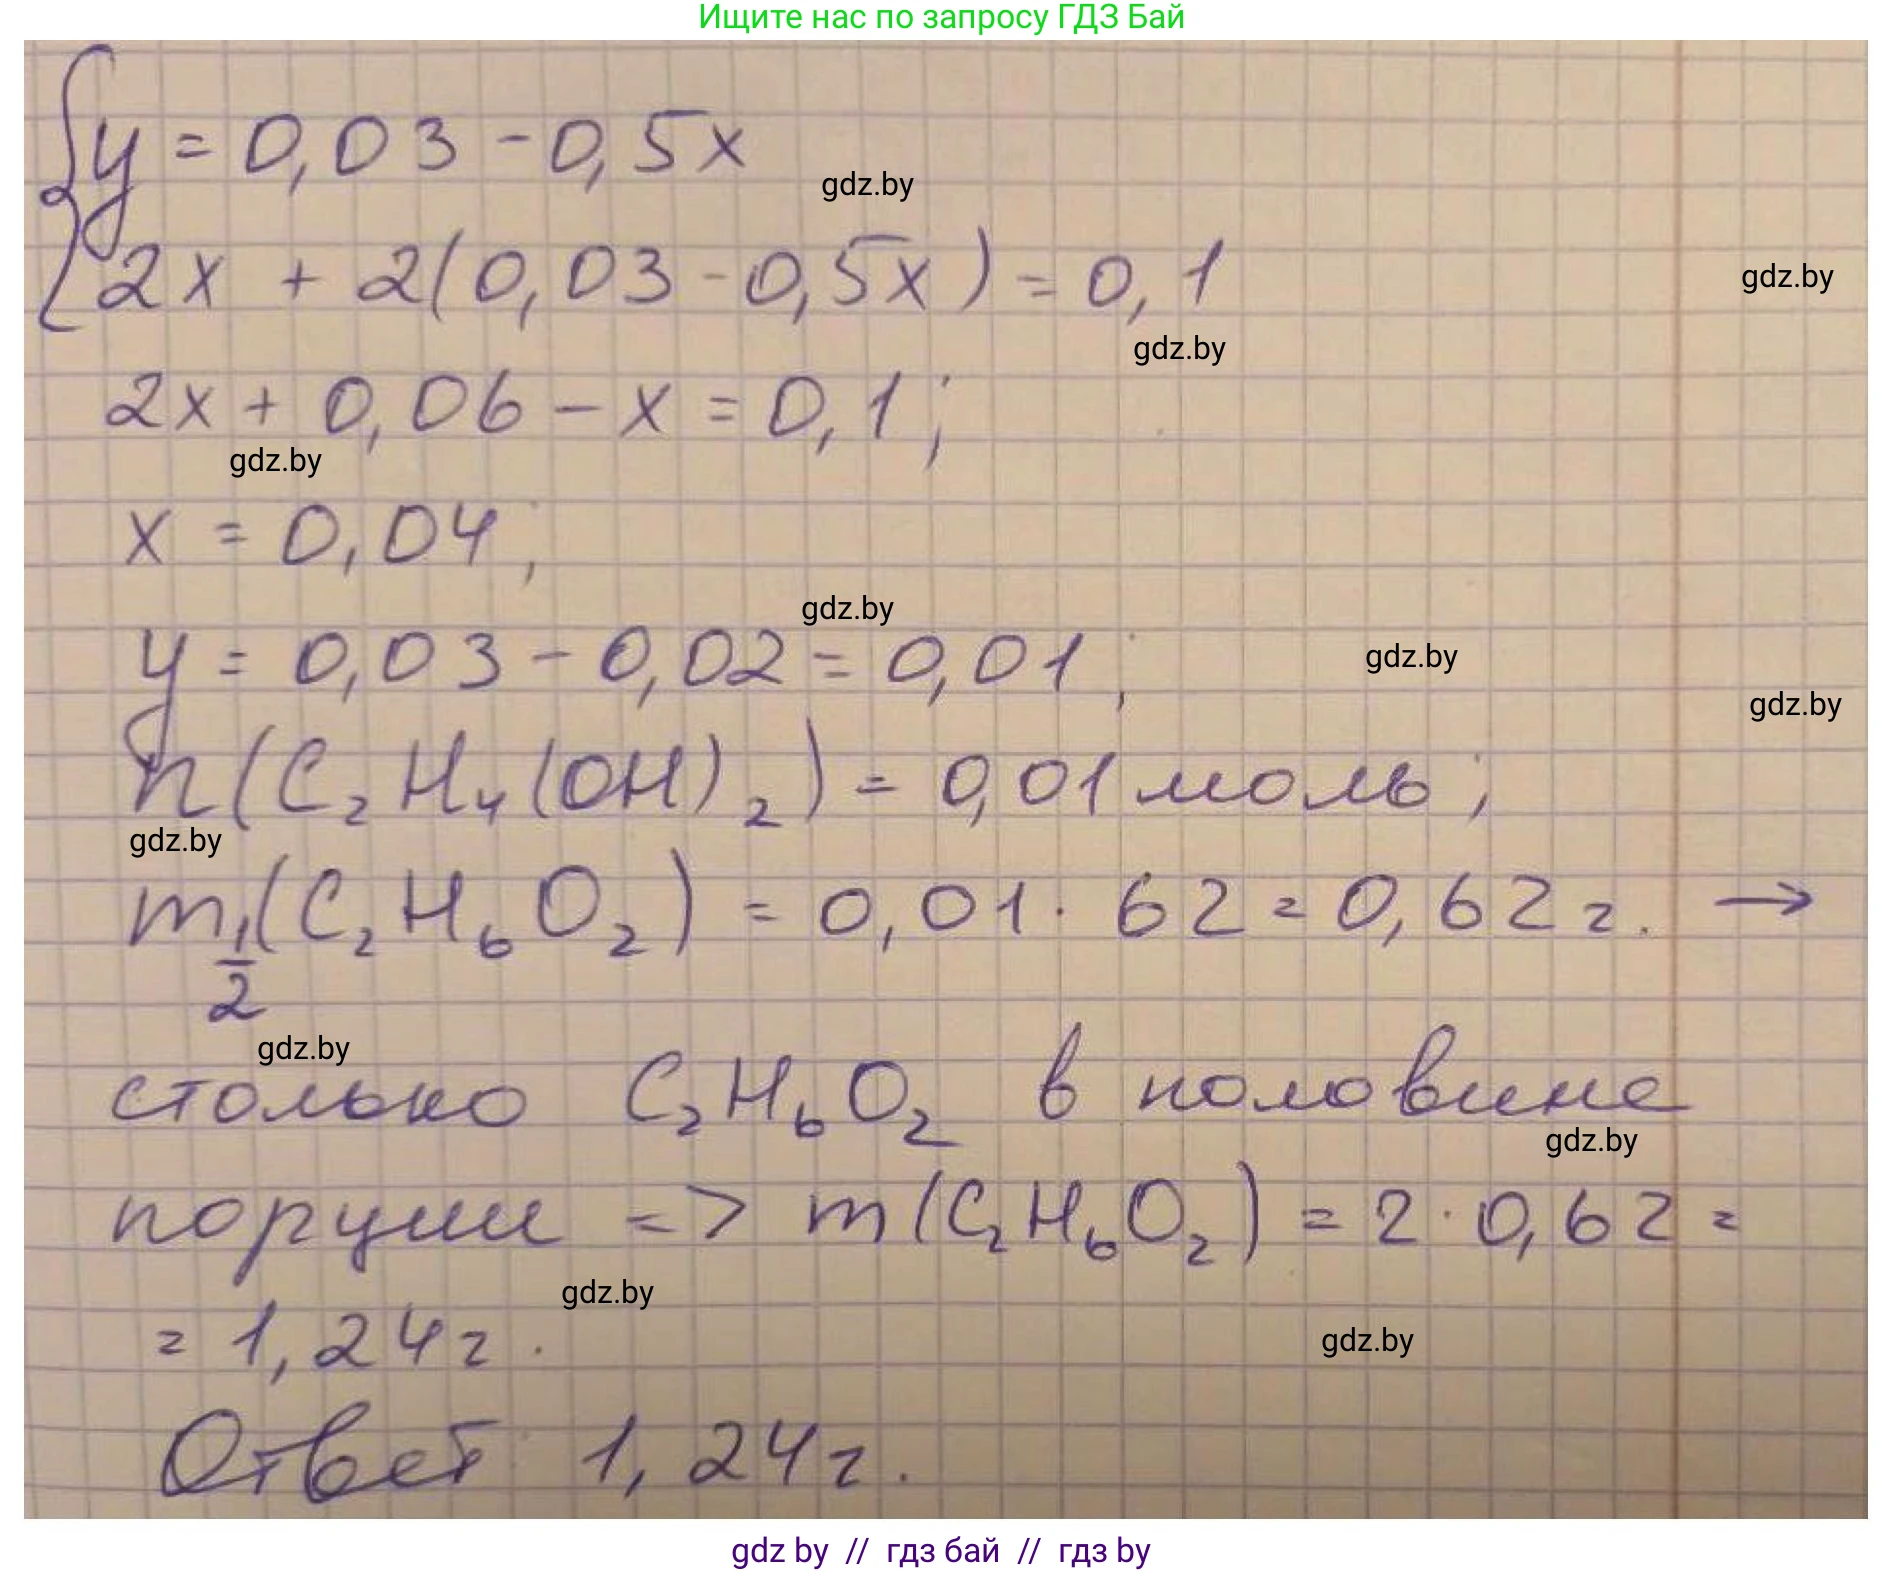 Ищите нас по запросу ГДЗ Бай
y = 0,03 - 0,5x
gdz.by
2x + 2(0,03 - 0,5x) = 0,1
gdz.by
gdz.by
2x + 0,06 - x = 0,1;
gdz.by
x = 0,04;
gdz.by
y = 0,03 - 0,02 = 0,01;
gdz.by
gdz.by
n(C₂H₄(OH)₂) = 0,01 моль;
gdz.by
m½(C₂H₆O₂) = 0,01 · 62 = 0,62 г. →
gdz.by
столько C₂H₆O₂ в половине
gdz.by
порции => m(C₂H₆O₂) = 2 · 0,62 =
gdz.by
= 1,24 г.
gdz.by
Ответ 1,24 г.
gdz by // гдз бай // гдз by